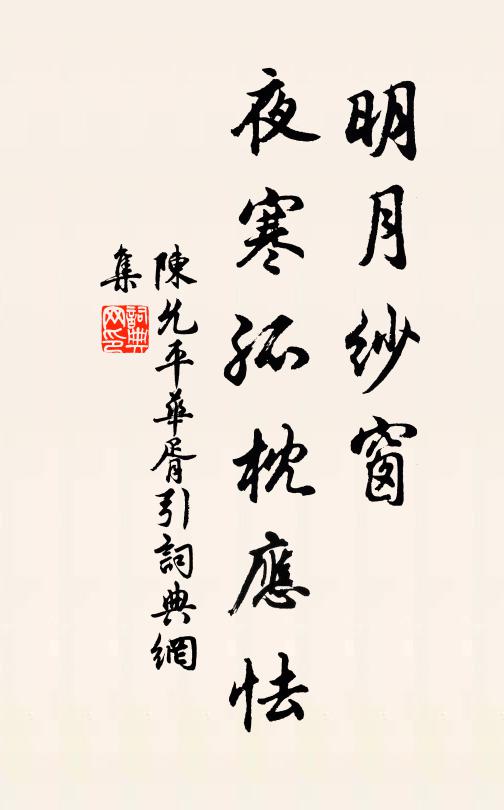 明月紗窗
夜寒孤枕應怯
陳允平華胥引詞典網
集
詞典
网印